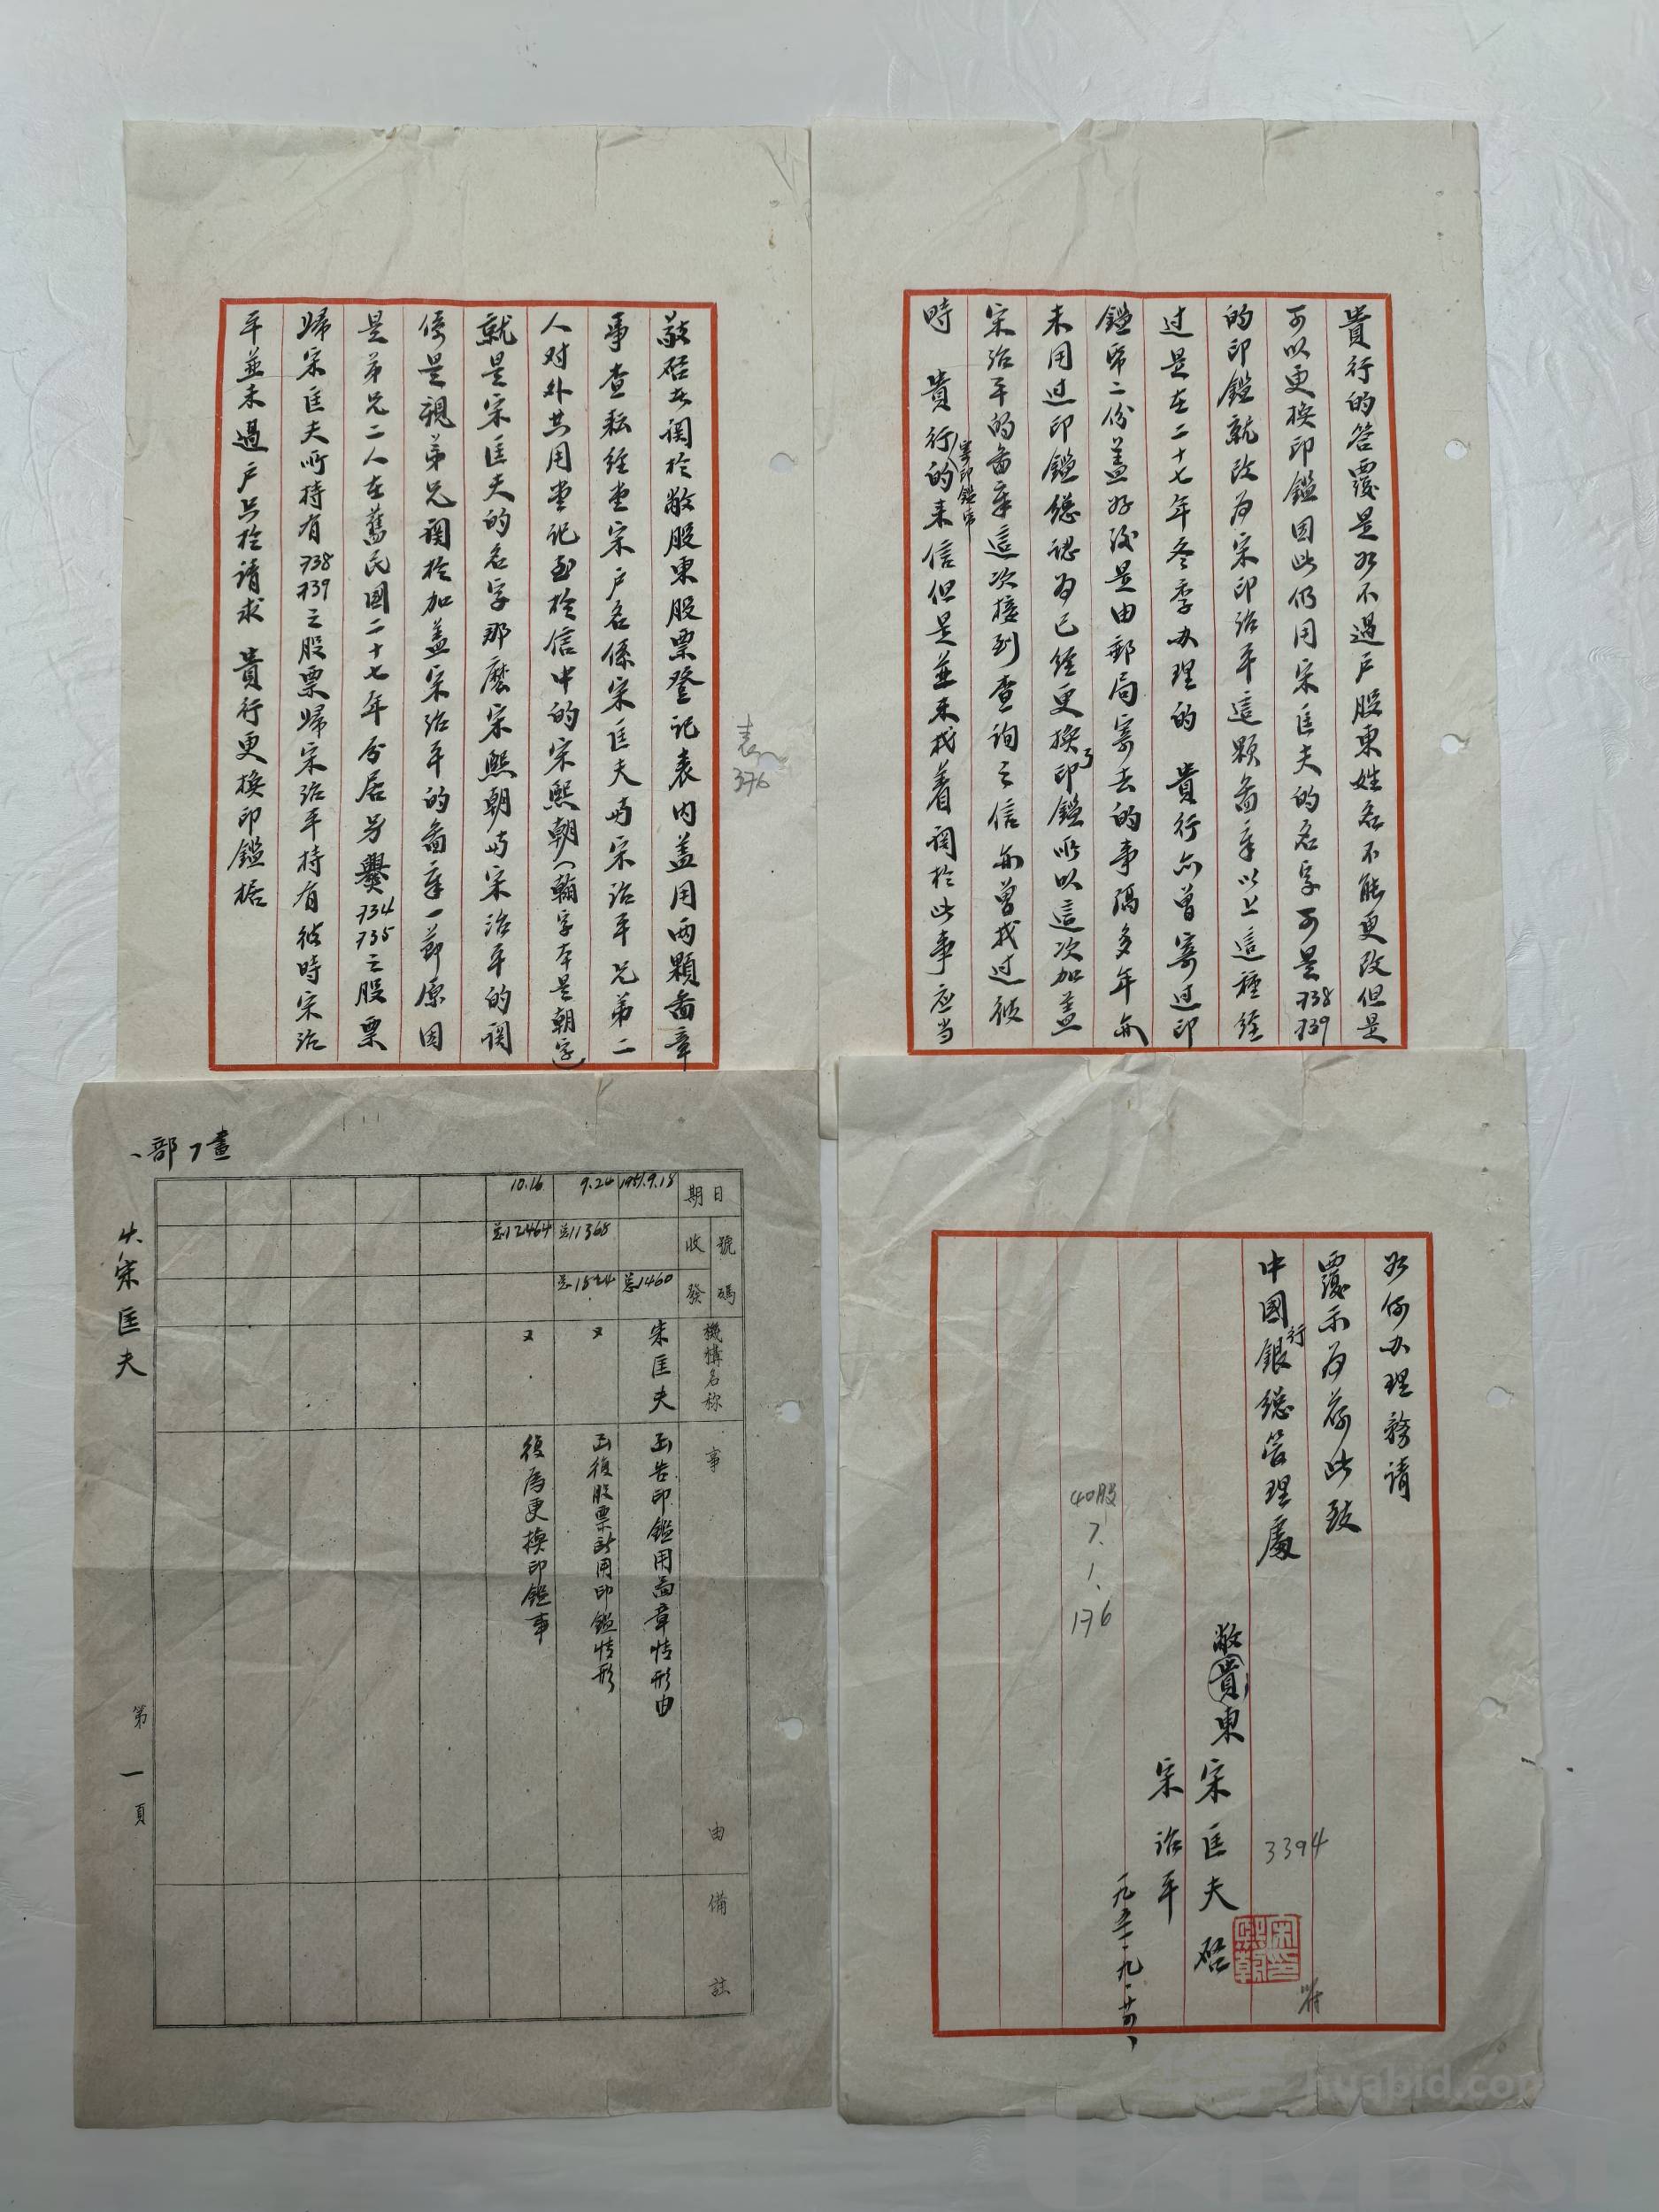 敬啓者関於敝股東股票登記表内盖用两顆啚章
事查耘经堂宋户名係宋匡夫与宋治平兄弟二
人对外共用堂记至於信中的宋熙朝(翰字本是朝字)
就是宋匡夫的名字那麽宋熙朝与宋治平的関
係是親弟兄関於加盖宋治平的啚章一節原因
是弟兄二人在舊民國二十七年分居另爨734735之股票
歸宋匡夫所持有738739之股票歸宋治平持有彼時宋治
平並未過户只於请求 貴行更换印鑑据
表
376
貴行的答覆是如不過户股東姓名不能更改但是
可以更换印鑑因此仍用宋匡夫的名字可是738739
的印鑑就改为宋印治平這顆啚章以上這種经
过是在二十七年冬季办理的 貴行亦曾寄过印
鑑帋二份盖好後是由郵局寄去的事隔多年亦
未用过印鑑總认为已经更换了印鑑所以這次加盖
宋治平的啚章這次接到查询之信亦曾找过彼
時 貴行(寄印鑑帋)的来信但是並未找着関於此事应当
如何办理務请
覆示为荷此致
中國銀行總管理處
敝貴東 宋匡夫 啓
宋治平
一九五一·九·廿四、
宋印熙朝
3394
40股
7.
1.
176
部了畫
宋匡夫
第一頁
日期 號碼 收 發 機構名称 事由 備註
1951.9.18 总1460 宋匡夫 函告印鑑用啚章情形由
9.24 总11368 总1524 〃 函復股票計用印鑑情形
10.16 总12464 〃 復為更换印鑑事
huabid.com